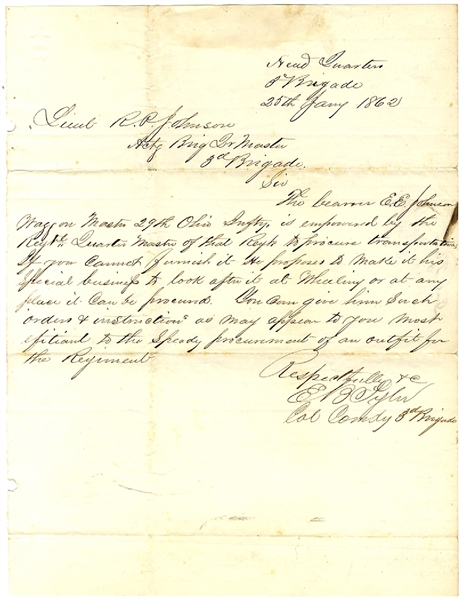 Head Quarters
3d Brigade
25th Jany 1862
Lieut R. P. Johnson
Actg Brig Qr Master
3d Brigade.
Sir
The bearer E. E. Johnson
Waggon Master 29th Ohio Infty. is empowered by the
Regtl Quarter Master of that Regt to procure transportation
If you cannot furnish it He proposes to make it his
special business to look after it at Wheeling or at any
place it can be procured. You can give him such
orders & instructions as may appear to you most
efficient to the speedy procurement of an outfit for
the Regiment
Respectfully &c
E B Tyler
Col Comdg 3d Brigade